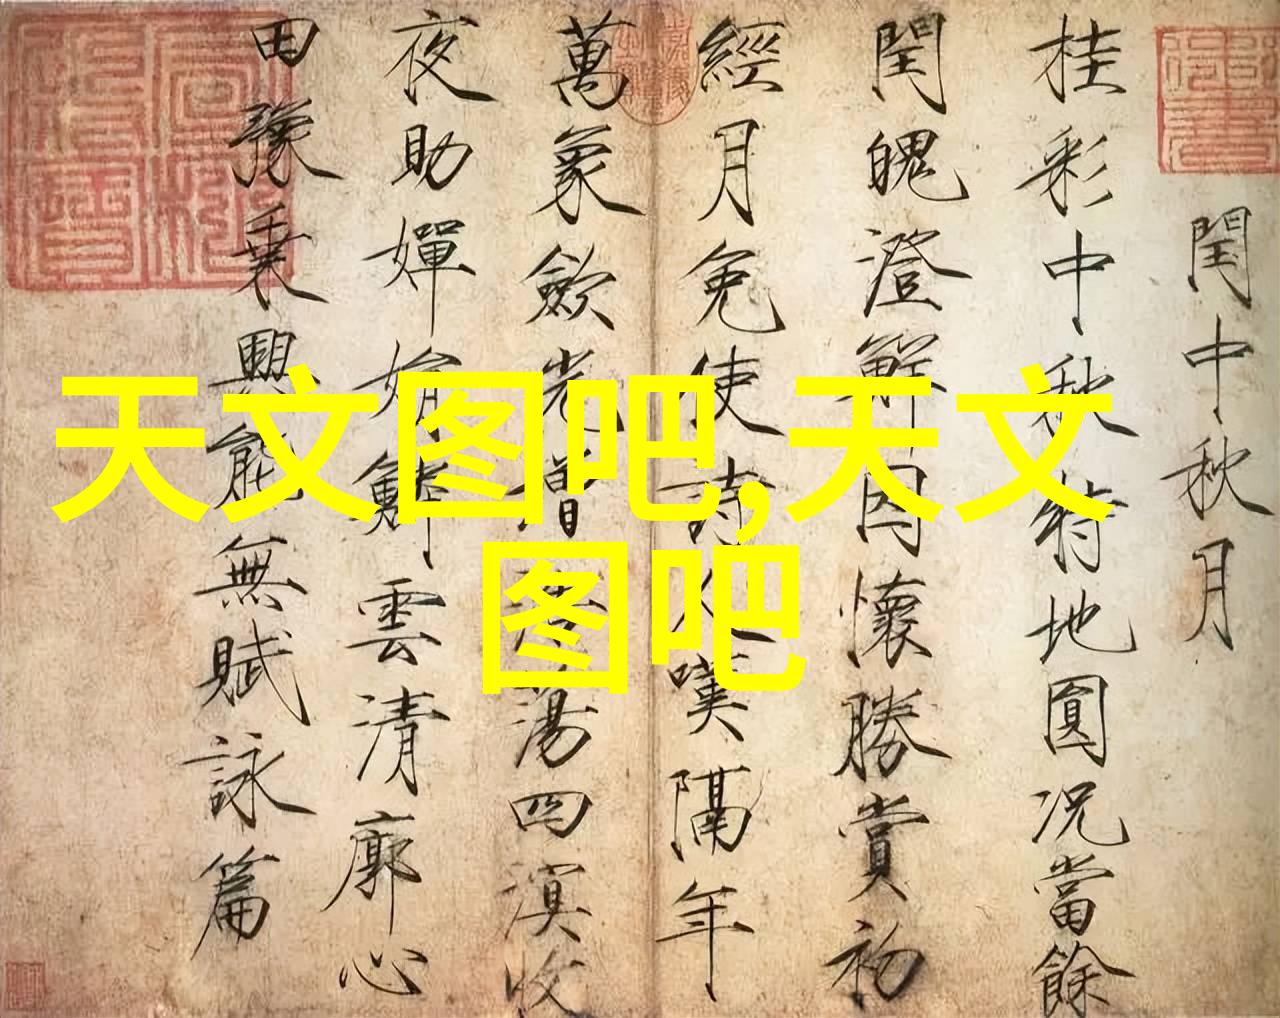 閏中秋月
桂彩中秋特地圓況當餘
閏魄澄鮮因懷勝賞初
經月免使詩人嘆隔年
萬象斂光增浩蕩四溟收
夜助嬋娟雲清廓心
田豫乗興能無賦詠篇
天文图吧,天文
图吧